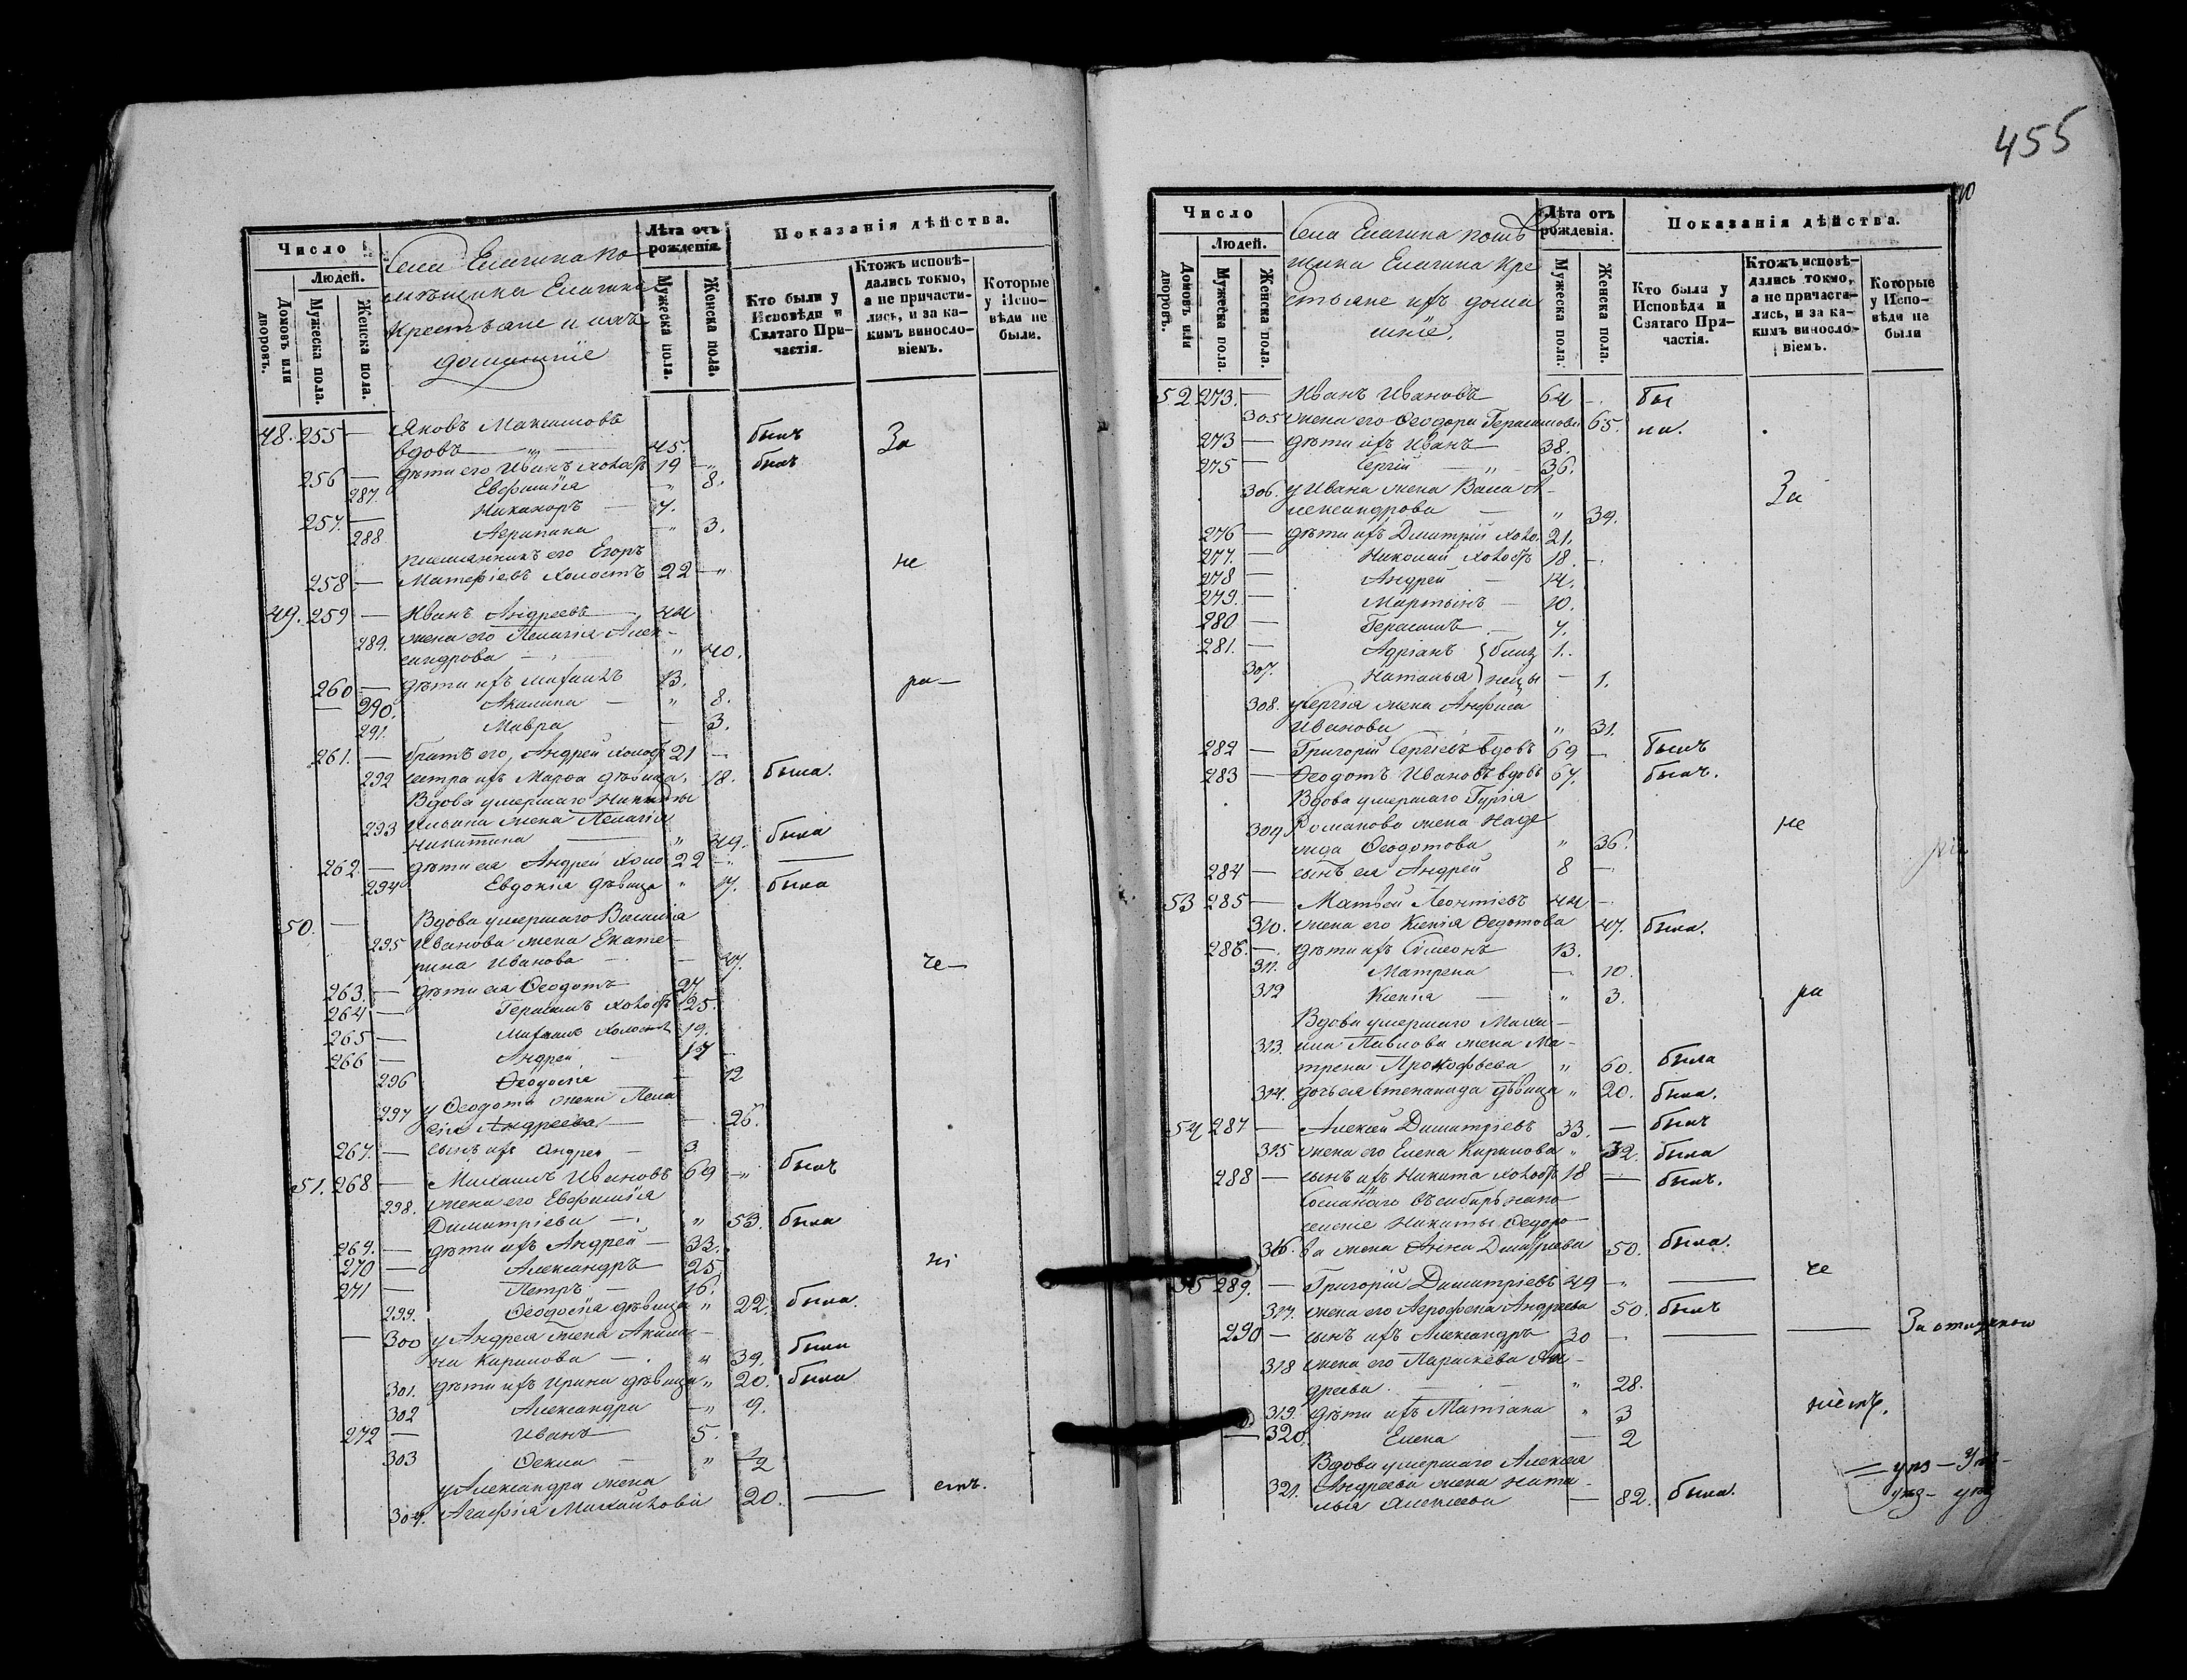 455
10
Число
Людей.
Домовъ или дворовъ.
Мужеска пола.
Женска пола.
Села Елагина по-
мѣщика Елагина
крестьяне и ихъ
домашніе
Лѣта отъ рожденія.
Мужеска пола.
Женска пола.
Показанія дѣйства.
Кто были у Исповѣди и Святаго Причастія.
Ктожъ исповѣдались токмо, а не причастились, и за какимъ винословіемъ.
Которые у Исповѣди не были.
48. 255 — Яковъ Максимовъ
вдовъ — „ — 45. былъ За
256 — дѣти его Иванъ холостъ 19 — „ былъ
287. Евфимія „ 8.
257. — Никаноръ — 7.
288 Агрипина — „ 3.
племянникъ его Егоръ
258 — Матфіевъ холостъ 22 — „ не
49. 259 — Иванъ Андреевъ 44
289. жена его Пелагія Алек-
сандрова — „ 40.
260 — дѣти ихъ Михаилъ 13. ра—
— 290. Акилина — „ 8.
291. Мавра — 3.
261. — братъ его, Андрей холостъ 21 —
292 сестра ихъ Марѳа дѣвица, 18. была.
Вдова умершаго Никиты
293 Ильина жена Пелагія
Никитина — „ 49. была
262 — дѣти ея Андрей холо 22 — „ —
294 Евдокія дѣвица „ 17. была
50. — Вдова умершаго Василія
295 Иванова жена Екате-
рина Иванова — — 47. че—
263. — дѣти ея Ѳеодотъ 27.
264 — Герасимъ холостъ 25.
265 — Михаилъ холостъ 19.
266 — Андрей — 17 —
296 Ѳеодосія — 12
297 у Ѳеодота жена Пела
гія Андреева — — 26.
267. — сынъ ихъ Андрей — 3
51. 268 — Михаилъ Ивановъ 69 — „ былъ
298. жена его Евфимія
Димитріева — „ 53. была
269. — дѣти ихъ Андрей — 33. ні
270 — Александръ 25.
271 — Петръ — 16.
299. Ѳеодосія дѣвица „ 22. была.
— 300 у Андрея жена Акили-
на Кирилова — „ 39. была
301. дѣти ихъ Ирина дѣвица „ 20. была
302 Александра — „ 9.
272 — Иванъ 5.
303 Ѳекла — „ 2
у Александра жена
304. Агафія Михайлова 20. — емъ.
Число
Людей.
Домовъ или дворовъ.
Мужеска пола.
Женска пола.
Села Елагина помѣ
щика Елагина кре
стьяне ихъ дома
шніе.
Лѣта отъ рожденія.
Мужеска пола.
Женска пола.
Показанія дѣйства.
Кто были у Исповѣди и Святаго Причастія.
Ктожъ исповѣдались токмо, а не причастились, и за какимъ винословіемъ.
Которые у Исповѣди не были
52. 273. — Иванъ Ивановъ 64 — бы
305 жена его Ѳеодора Герасимова 65. ли.
273 — дѣти ихъ Иванъ — 38.
275 — Сергій — „ 36.
306. у Ивана жена Васа А-
лександрова — „ 39. За
276 — дѣти ихъ Димитрій холо. 21.
277. — Николай холостъ 18. —
278 — Андрей — 14.
279. — Мартынъ — 10.
280 — Герасимъ — 7.
281. — Адріанъ } близ 1.
307. Наталья } нецы — 1.
308. у Сергія жена Анфиса
Иванова „ 31.
282 — Григорій Сергіевъ вдовъ 69 — былъ
283 — Ѳеодотъ Ивановъ вдовъ 67. былъ.
Вдова умершаго Гурія
309 Романова жена Наде не
жда Ѳеодотова „ 36.
284 — сынъ ея Андрей 8 —
53 285 — Матвей Леонтіевъ 44 —
310. жена его Ксенія Ѳедотова 47. была.
286. — дѣти ихъ Симеонъ 13.
311. Матрена — 10.
312 Ксенія — „ 3. ра
Вдова умершаго Макси-
313. ма Павлова жена Ма-
трена Прокофьева „ 60. была
314. дочь ея Степанида дѣвица „ 20. была.
54 287 — Алексей Димитріевъ 33. — былъ
315 жена его Елена Кирилова „ 32. была
288 — сынъ ихъ Никита холостъ 18 — былъ.
Сосланнаго въ сибирь на по
селеніе Никиты Ѳедоро
316. ва жена Анна Димитріева 50. была.
55 289. — Григорій Димитріевъ 49 — „ — че
317. жена его Агрофена Андреева 50. былъ
290 — сынъ ихъ Александръ 30 — — — За отлучкою
318 жена его Параскева Ан-
дреева. — „ 28.
319. дѣти ихъ Матіана „ 3 ніемъ.
— 320. Елена — 2
Вдова умершаго Алексея
321. Андреева жена Ната-
лья Алексеева — 82. была.